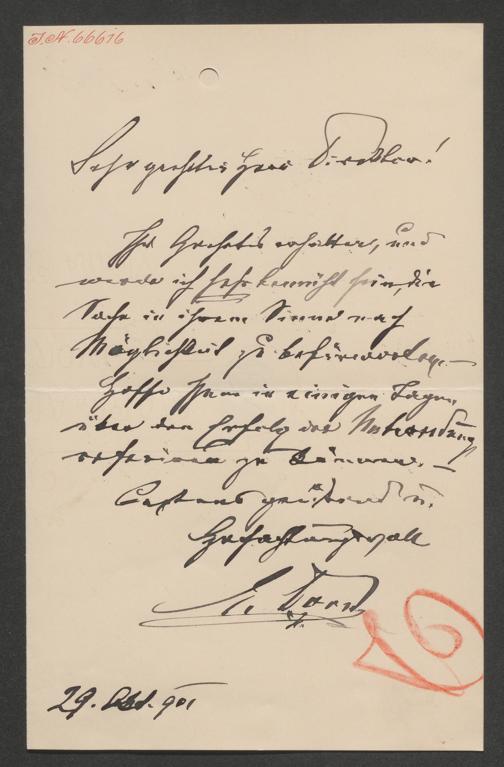 J. N. 66616
Sehr geehrter Herr Direktor!
Ihr Geehrtes erhalten, und
werde ich sehr bemüht sein, die
Sache in ihrem Sinne nach
Möglichkeit zu befürworten. —
Hoffe Ihnen in einigen Tagen
über den Erfolg der
referieren zu können. —
Bestens grüßend u.
Hochachtungsvoll
Dorn
29. Okt. 901